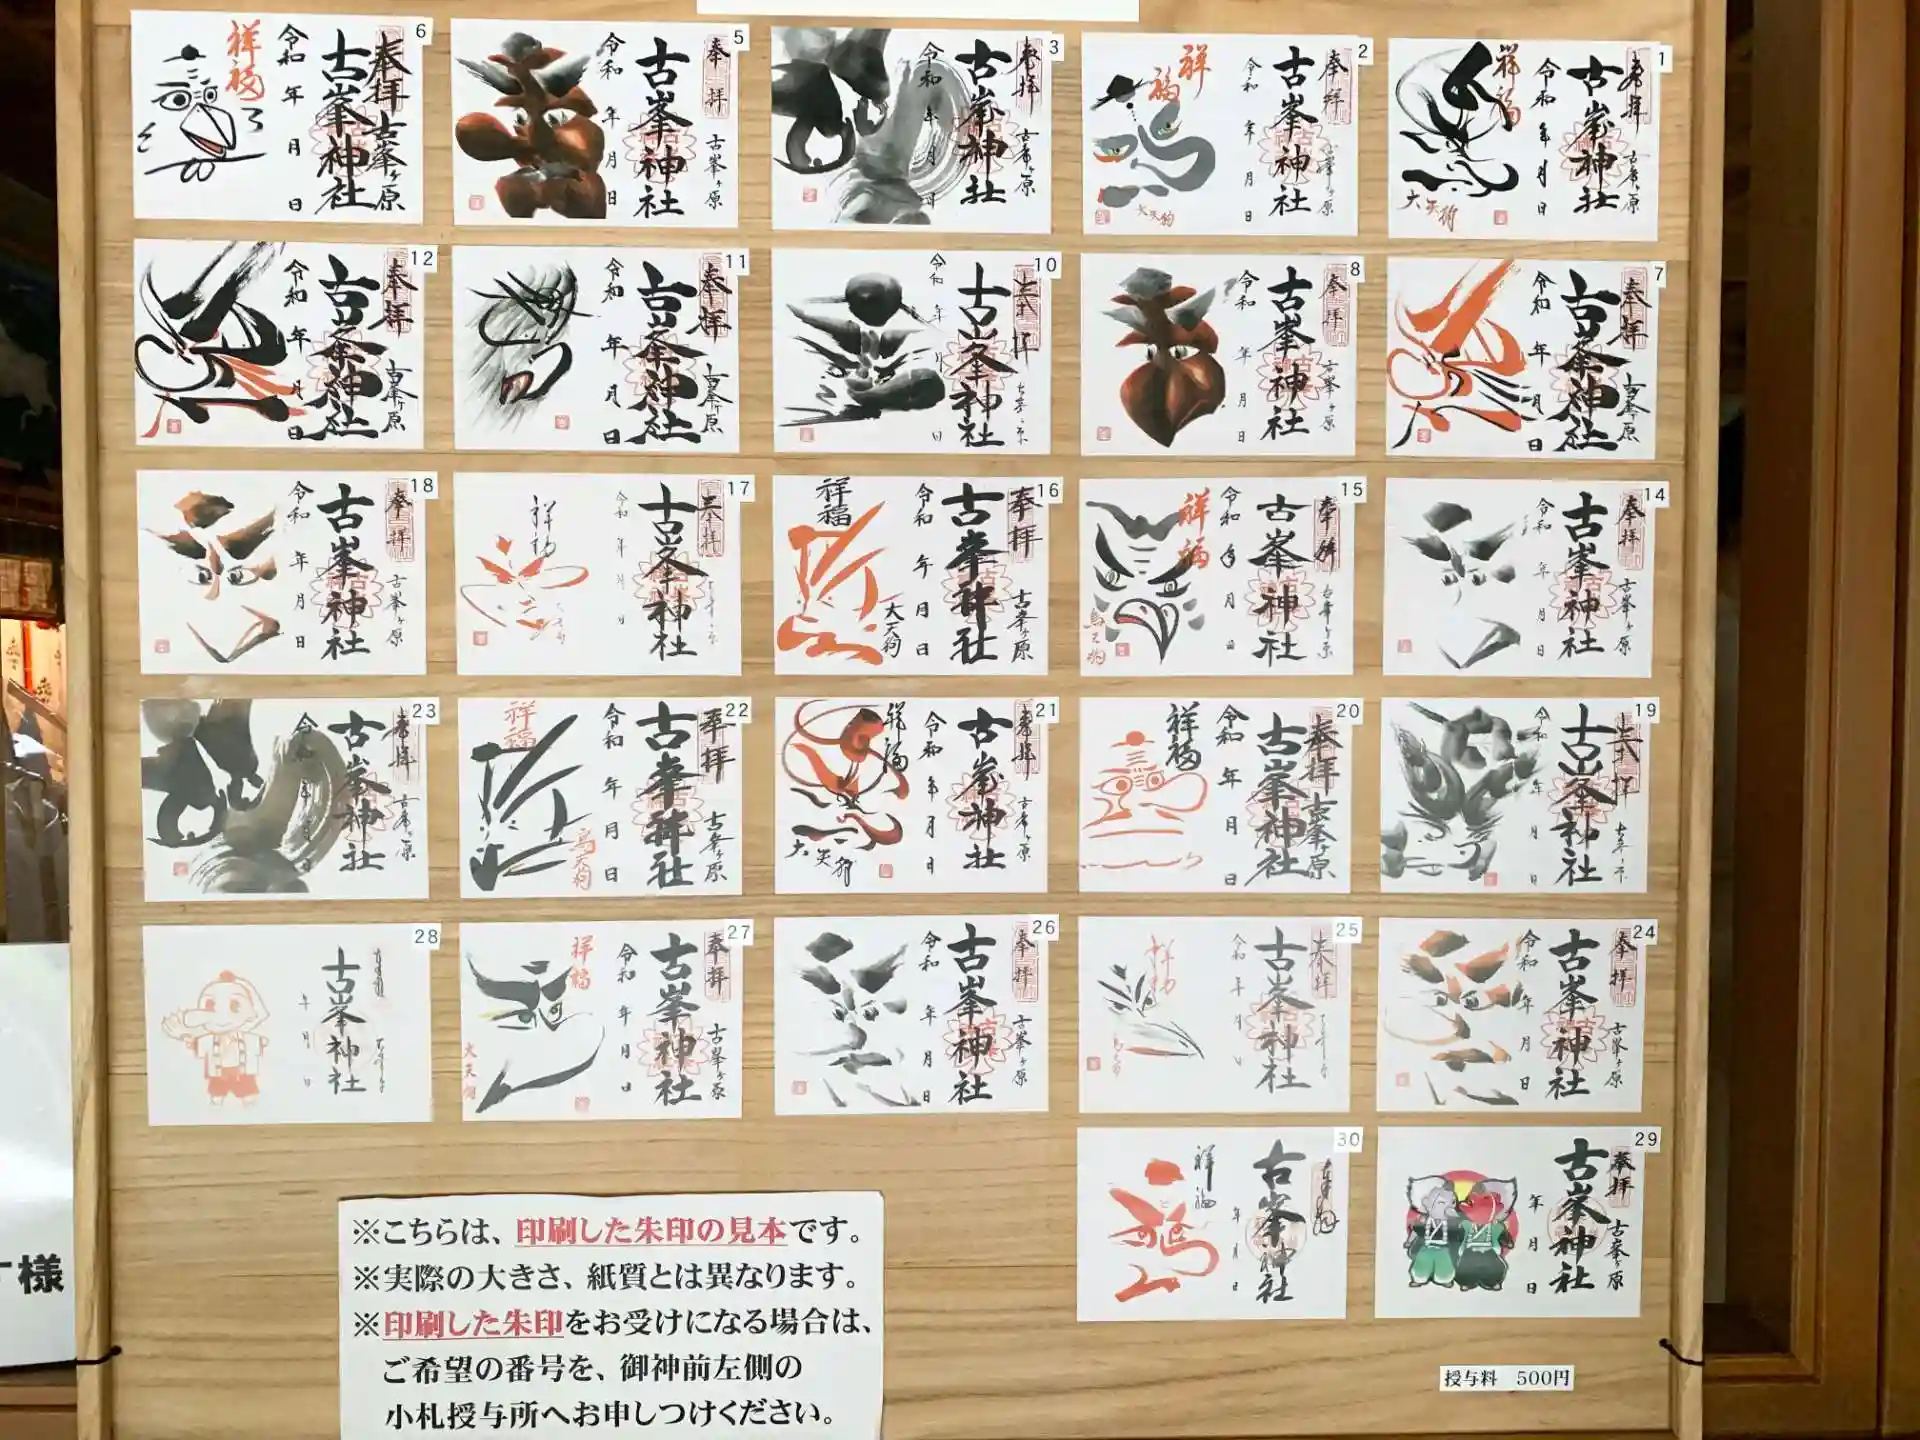 1
奉拝
古峯ヶ原
古峯神社
令和 年 月 日
祥福
大天狗
2
奉拝
古峯ヶ原
古峯神社
令和 年 月 日
祥福
大天狗
3
奉拝
古峯ヶ原
古峯神社
令和 年 月 日
5
奉拝
古峯ヶ原
古峯神社
令和 年 月 日
6
奉拝 古峯ヶ原
古峯神社
令和 年 月 日
祥福
7
奉拝
古峯ヶ原
古峯神社
令和 年 月 日
8
奉拝
古峯ヶ原
古峯神社
令和 年 月 日
10
奉拝
古峯神社
令和 年 月 日
11
奉拝
古峯ヶ原
古峯神社
令和 年 月 日
12
奉拝
古峯ヶ原
古峯神社
令和 年 月 日
14
奉拝
古峯ヶ原
古峯神社
令和 年 月 日
15
奉拝
古峯ヶ原
古峯神社
令和 年 月 日
祥福
烏天狗
16
奉拝
古峯ヶ原
古峯神社
令和 年 月 日
祥福
大天狗
17
奉拝
古峯神社
令和 年 月 日
祥福
18
奉拝
古峯ヶ原
古峯神社
令和 年 月 日
19
奉拝
古峯神社
令和 年 月 日
20
奉拝 古峯ヶ原
古峯神社
令和 年 月 日
祥福
21
奉拝
古峯ヶ原
古峯神社
令和 年 月 日
祥福
大天狗
22
奉拝
古峯ヶ原
古峯神社
令和 年 月 日
祥福
烏天狗
23
奉拝
古峯ヶ原
古峯神社
令和 年 月 日
24
奉拝
古峯ヶ原
古峯神社
令和 年 月 日
25
奉拝
古峯神社
令和 年 月 日
祥福
26
奉拝
古峯ヶ原
古峯神社
令和 年 月 日
27
奉拝
古峯ヶ原
古峯神社
令和 年 月 日
祥福
大天狗
28
古峯神社
年 月 日
29
奉拝
古峯ヶ原
古峯神社
年 月 日
30
古峯神社
年 月 日
祥福
※こちらは、印刷した朱印の見本です。
※実際の大きさ、紙質とは異なります。
※印刷した朱印をお受けになる場合は、
ご希望の番号を、御神前左側の
小札授与所へお申しつけください。
授与料 500円
す様